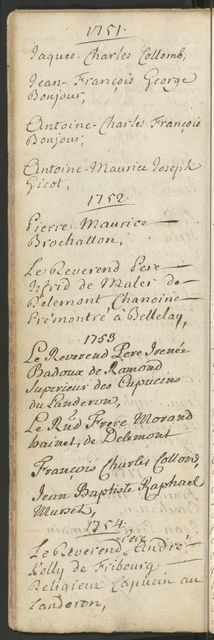 1751.
Jaques. Charles Collomb,
Jean-François George
Bonjour,
Antoine-Charles François
Bonjour,
Antoine-Maurice Joseph
Gicot,
1752.
Pierre-Maurice
Brochatton,
Le Reverend Pere
de Maler de
Chanoine
Premontré à Bellelay,
1753
Le Reverend Pere Irenée
Badoux de Ramond
Superieur des Capucins
du Landeron,
Le Rnd Frere Morand
de Delemont
François Charles Collomb,
Jean Baptiste Raphael
Murset,
1754.
Le Reverend Pere André
Kolly de Fribourg
Religieux Capucin au
Landeron,